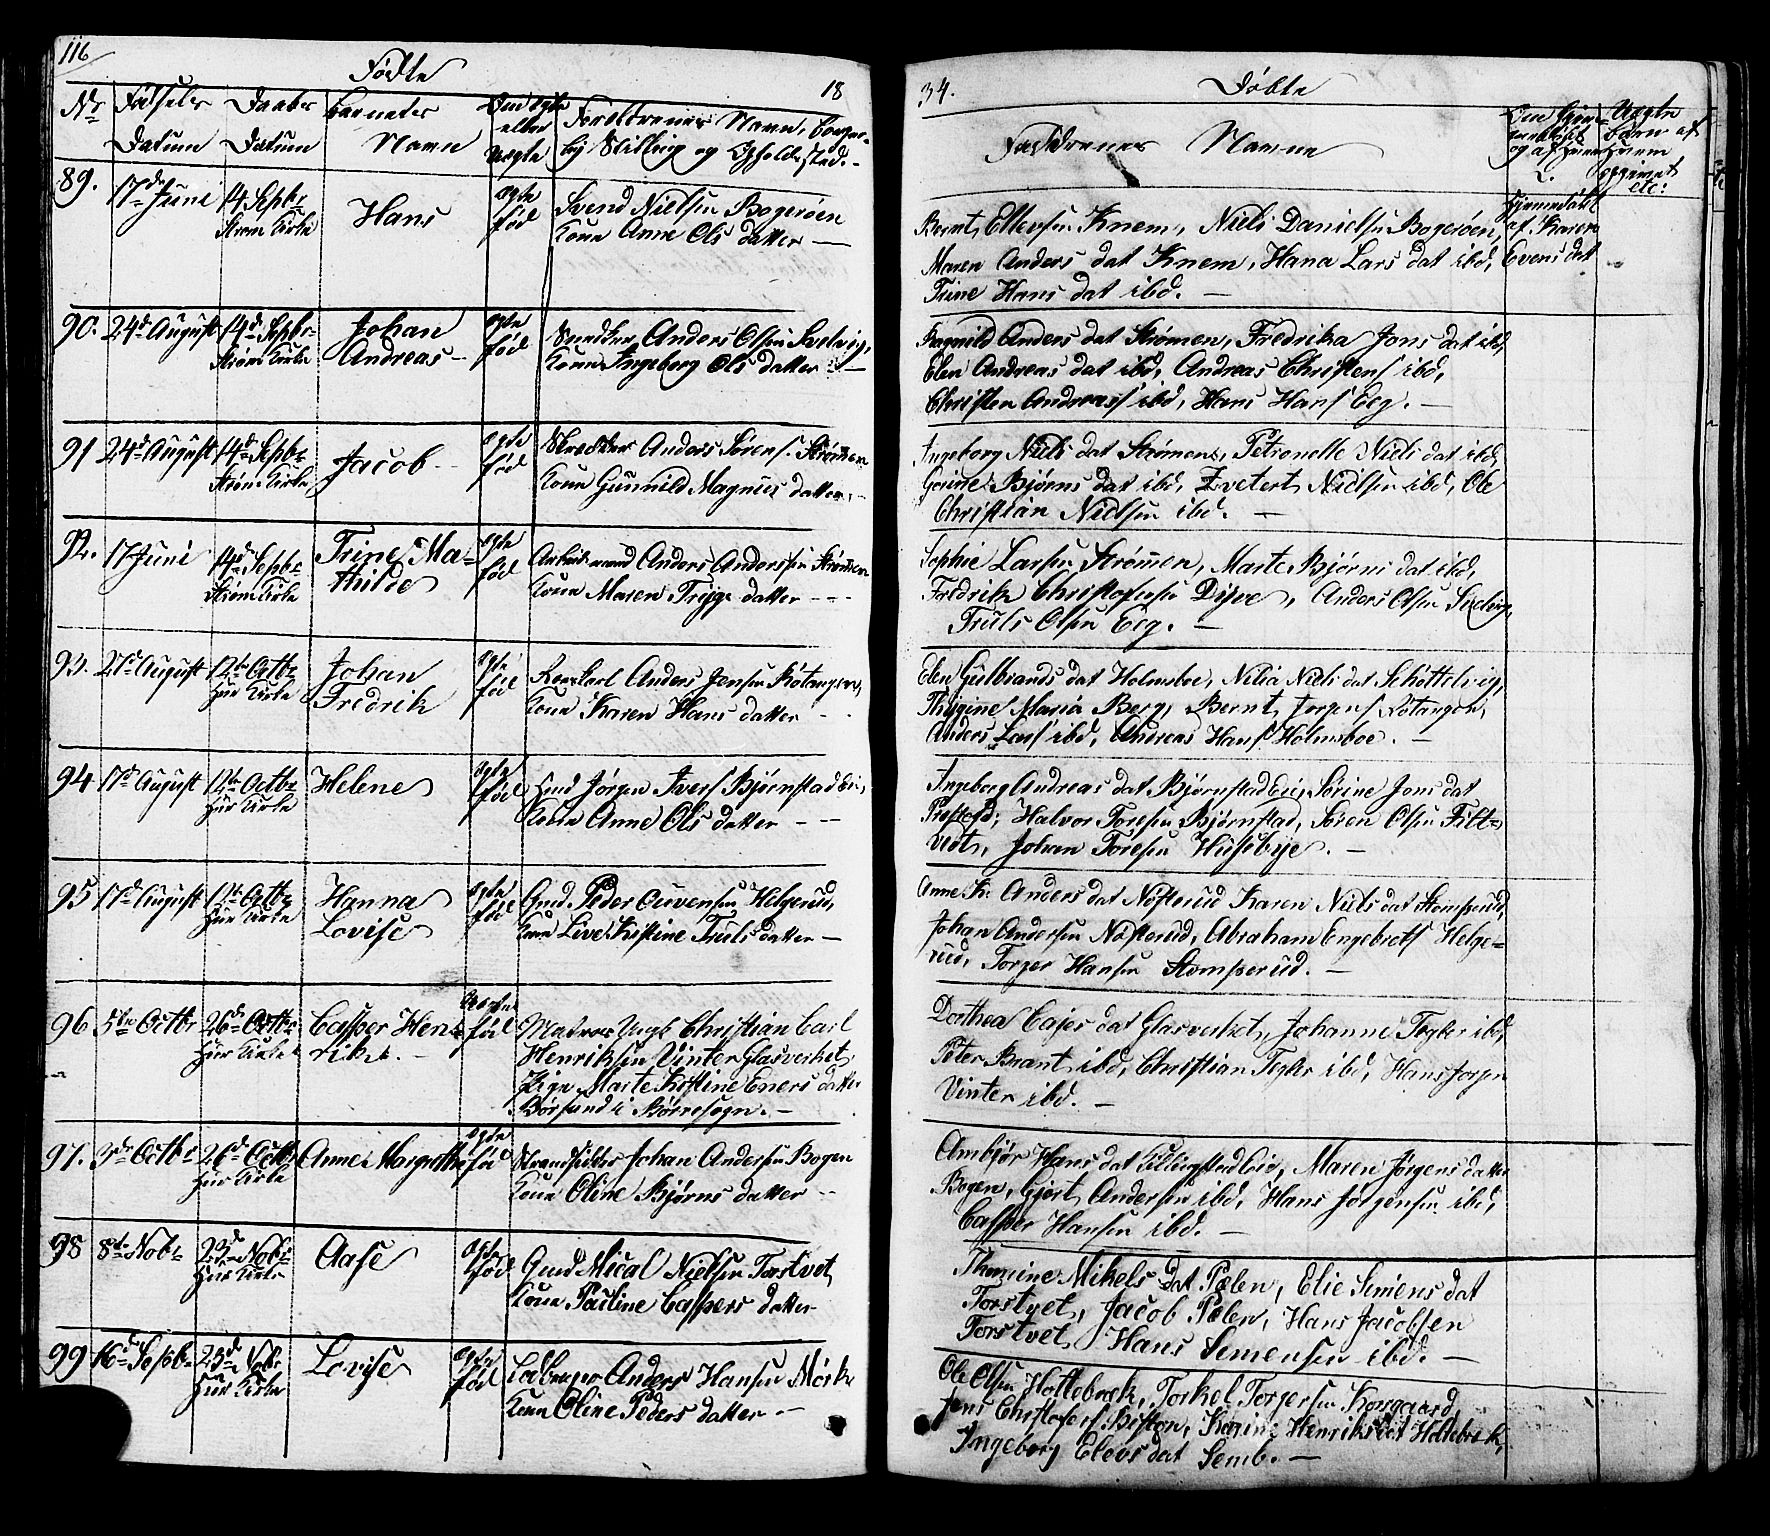 116
Fødte
18
Nr Fødsels Daabs Barnets Om Ægte Forældrenes Navn, Borger-
Datum Datum Navn eller Uægte lig Stilling og Opholdssted.
89. 17de Juni 14 Septbr Strøm Kirke Hans ægte fød Svend Nielsen Bogerøen
Kone Anne Ols datter
90. 24d August 14d Septbr Strøm Kirke Johan Andreas ægte fød Anders Olsen Svelvig,
Kone Ingeborg Ols datter
91 24d August 14d Septbr Strøm Kirke Jacob ægte fød Skredder Anders Sørens. Strømen
Kone Gunnild Magnus datter
92. 17 Juni 14d Septbr Strøm Kirke Trine Ma=
thilde ægte fød Arbeidsmand Anders Andersen Strømen
Kone Maren Trygs datter
93. 27d August 12te Octbr Hur Kirke Johan
Fredrik ægte fød Anders Jensen Røtangen,
Kone Karen Hans datter
94 17d August 12te Octbr Hur Kirke Helene ægte fød Gmd Jørgen Ivers Bjørnstad Eie,
Kone Anne Ols datter
95 17d August 12te Octbr Hur Kirke Hanna
Lovise ægte fød Gmd Peder Auvensen Helgerud,
Kone Live Kistine Truls datter
96 5te Octbr 26d Octbr Hur Kirke Casper Hen=
rik. Uægte fød Matros Ungk Christian Carl
Henriksen Vinter Glasverket,
Pige Marte Kistine Eners datter
Børsund i Børresogn.
97. 3de Octbr 26d Octbr Hur Kirke Anne Margrethe ægte fød Strandsidder Johan Andersen Bogen
Kone Oline Bjørns datter
98 8de Nobr 23d Nobr Hur Kirke Aase ægte fød Gmd Mical Nielsen Torstvet
Kone Pauline Caspers datter
99 16d Septbr 23d Nobr Hur Kirke Lovise ægte fød Anders Hansen Mørk
Kone Oline Peders datter
34.
Døbte
Faddrenes Navne
Om Hjem-
medøbt
og af Hvem
Uægte
Børn af
Hvem
Bernt Ellevsen Knem, Niels Danielsen Bogerøen,
Maren Anders dat Knem, Hana Lars dat ibd,
Trine Hans dat ibd.
Hjemmedøbt
af Karen
Evens dat
Ragnild Anders dat Strømen, Fredrika Jons dat ibd,
Elen Andreas dat ibd, Andreas Christens ibd,
Christen Andreass ibd, Hans Hans Eeg.
Ingeborg Niels dat Strømen, Petronelle Niels dat ibd,
Gorine Bjørns dat ibd, Nielsen ibd, Ole
Christian Nielsen ibd.
Sophie Larsen Strømen, Marte Bjørns dat ibd,
Fredrik Christophersen Dyve, Anders Olsen Svelvig,
Truls Olsen Eeg.
Elen Gulbrands dat Holmsboe, Nilia Niels dat Schøttelvig,
Thygine Maria Berg, Bernt Jorgens Rotangen,
Anders Lars ibd, Andreas Hans Holmsboe.
Ingeborg Andreas dat Bjørnstad Eie, Sørine Jons dat
Halvor Toresen Bjørnstad, Søren Olsen Filt=
vedt, Johan Toresen Husebye.
Anne K. Anders dat Nøsterud Karen Niels dat Stomperud,
Johan Andersen Nøsterud, Abraham Engebrets Helge=
rud, Torger Hansen Stomperud.
Dorthea Cajes dat Glasverket, Johanne Tegler ibd,
Peter Brant ibd, Christian Tegler ibd, Hans Jorgen
Vinter ibd.
Ambjør Hans dat Eie, Maren Jørgens datter
Bogen, Gjert Andersen ibd, Hans Jørgensen ibd,
Casper Hansen ibd.
Thomine Mikels dat Pælen, Elie Semens dat
Torstvet, Jacob Pælen, Hans Jacobsen
Torstvet, Hans Semensen ibd.
Ole Olsen Holtebræk, Torkel Torgersen Korsgaard,
Jens Christofers. Karine Henriksdat Holtebræk,
Ingeborg Elevs dat Semb.